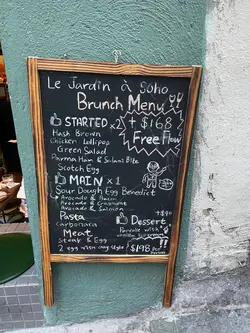 Le Jardin à Soho
Brunch Menu
STARTED x2
+ $168
Free Flow
Hash Brown
Chicken Lollipop
Green Salad
Parma Ham & Salami Bite
Scotch Egg
MAIN x 1
Sour Dough Egg Benedict
Avocado & Bacon
Avocado &
Avocado & Salmon
Pasta
Carbonara
Meat
Steak & Egg
2 egg with any style
+$40
Dessert
Pancake with
vanilla
$198